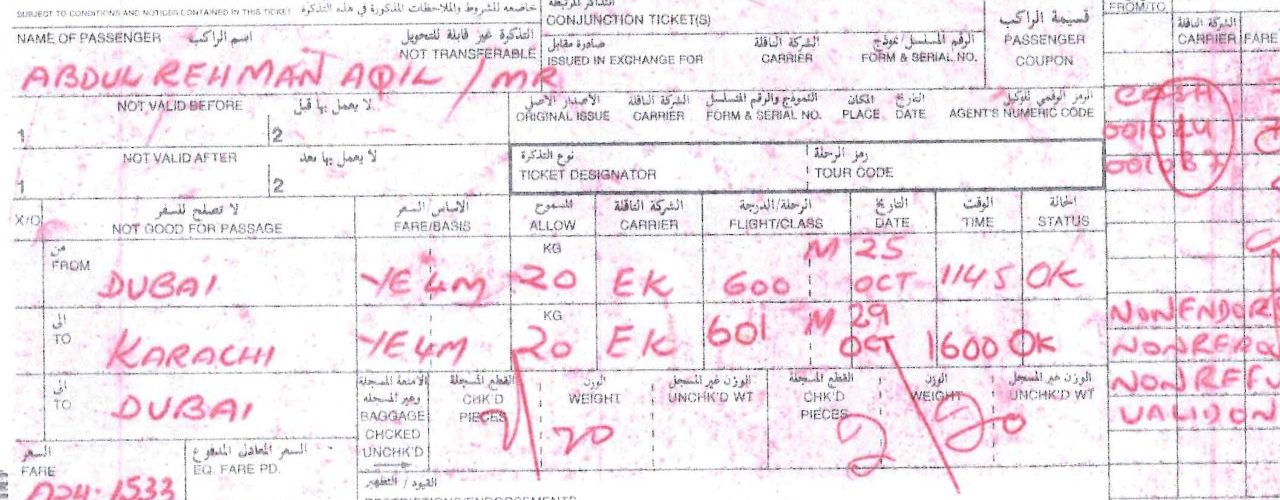 SUBJECT TO CONDITIONS AND NOTICES CONTAINED IN THIS TICKET خاضعه للشروط والملاحظات المذكورة في هذه التذكرة
NAME OF PASSENGER اسم الراكب التذكرة غير قابلة للتحويل
NOT TRANSFERABLE
ABDUL REHMAN AQIL / MR
CONJUNCTION TICKET(S)
صادرة مقابل الشركة الناقلة الرقم المسلسل / نموذج
ISSUED IN EXCHANGE FOR CARRIER FORM & SERIAL NO.
قسيمة الراكب
PASSENGER
COUPON
FROM/TO
الشركة الناقلة
CARRIER FARE
NOT VALID BEFORE لا يعمل بها قبل
1 2
NOT VALID AFTER لا يعمل بها بعد
1 2
الأصدار الأصلي الشركة الناقلة النموذج والرقم المتسلسل المكان التاريخ الرمز الرقمي للوكيل
ORIGINAL ISSUE CARRIER FORM & SERIAL NO. PLACE DATE AGENT'S NUMERIC CODE
نوع التذكرة رمز الرحلة
TICKET DESIGNATOR TOUR CODE
X/O لا تصلح للسفر الاساس/السعر المسموح الشركة الناقلة الرحلة/الدرجة التاريخ الوقت الحالة
NOT GOOD FOR PASSAGE FARE/BASIS ALLOW CARRIER FLIGHT/CLASS DATE TIME STATUS
من FROM DUBAI YE4M KG 20 EK 600 M 25 OCT 1145 OK
الى TO KARACHI YE4M KG 20 EK 601 M 29 OCT 1600 OK
NONENDOR
NON
NONREFU
VALID ON
الى TO DUBAI
الامتعة المسجلة وغير المسجلة القطع المسجلة الوزن الوزن غير المسجل القطع المسجلة الوزن الوزن غير المسجل
BAGGAGE CHCKED UNCHK'D CHK'D PIECES WEIGHT UNCHK'D WT CHK'D PIECES WEIGHT UNCHK'D WT
20 2 20
السعر السعر المعادل المدفوع
FARE EQ. FARE PD.
1533
القيود / التظهير
RESTRICTIONS/ENDORSEMENTS